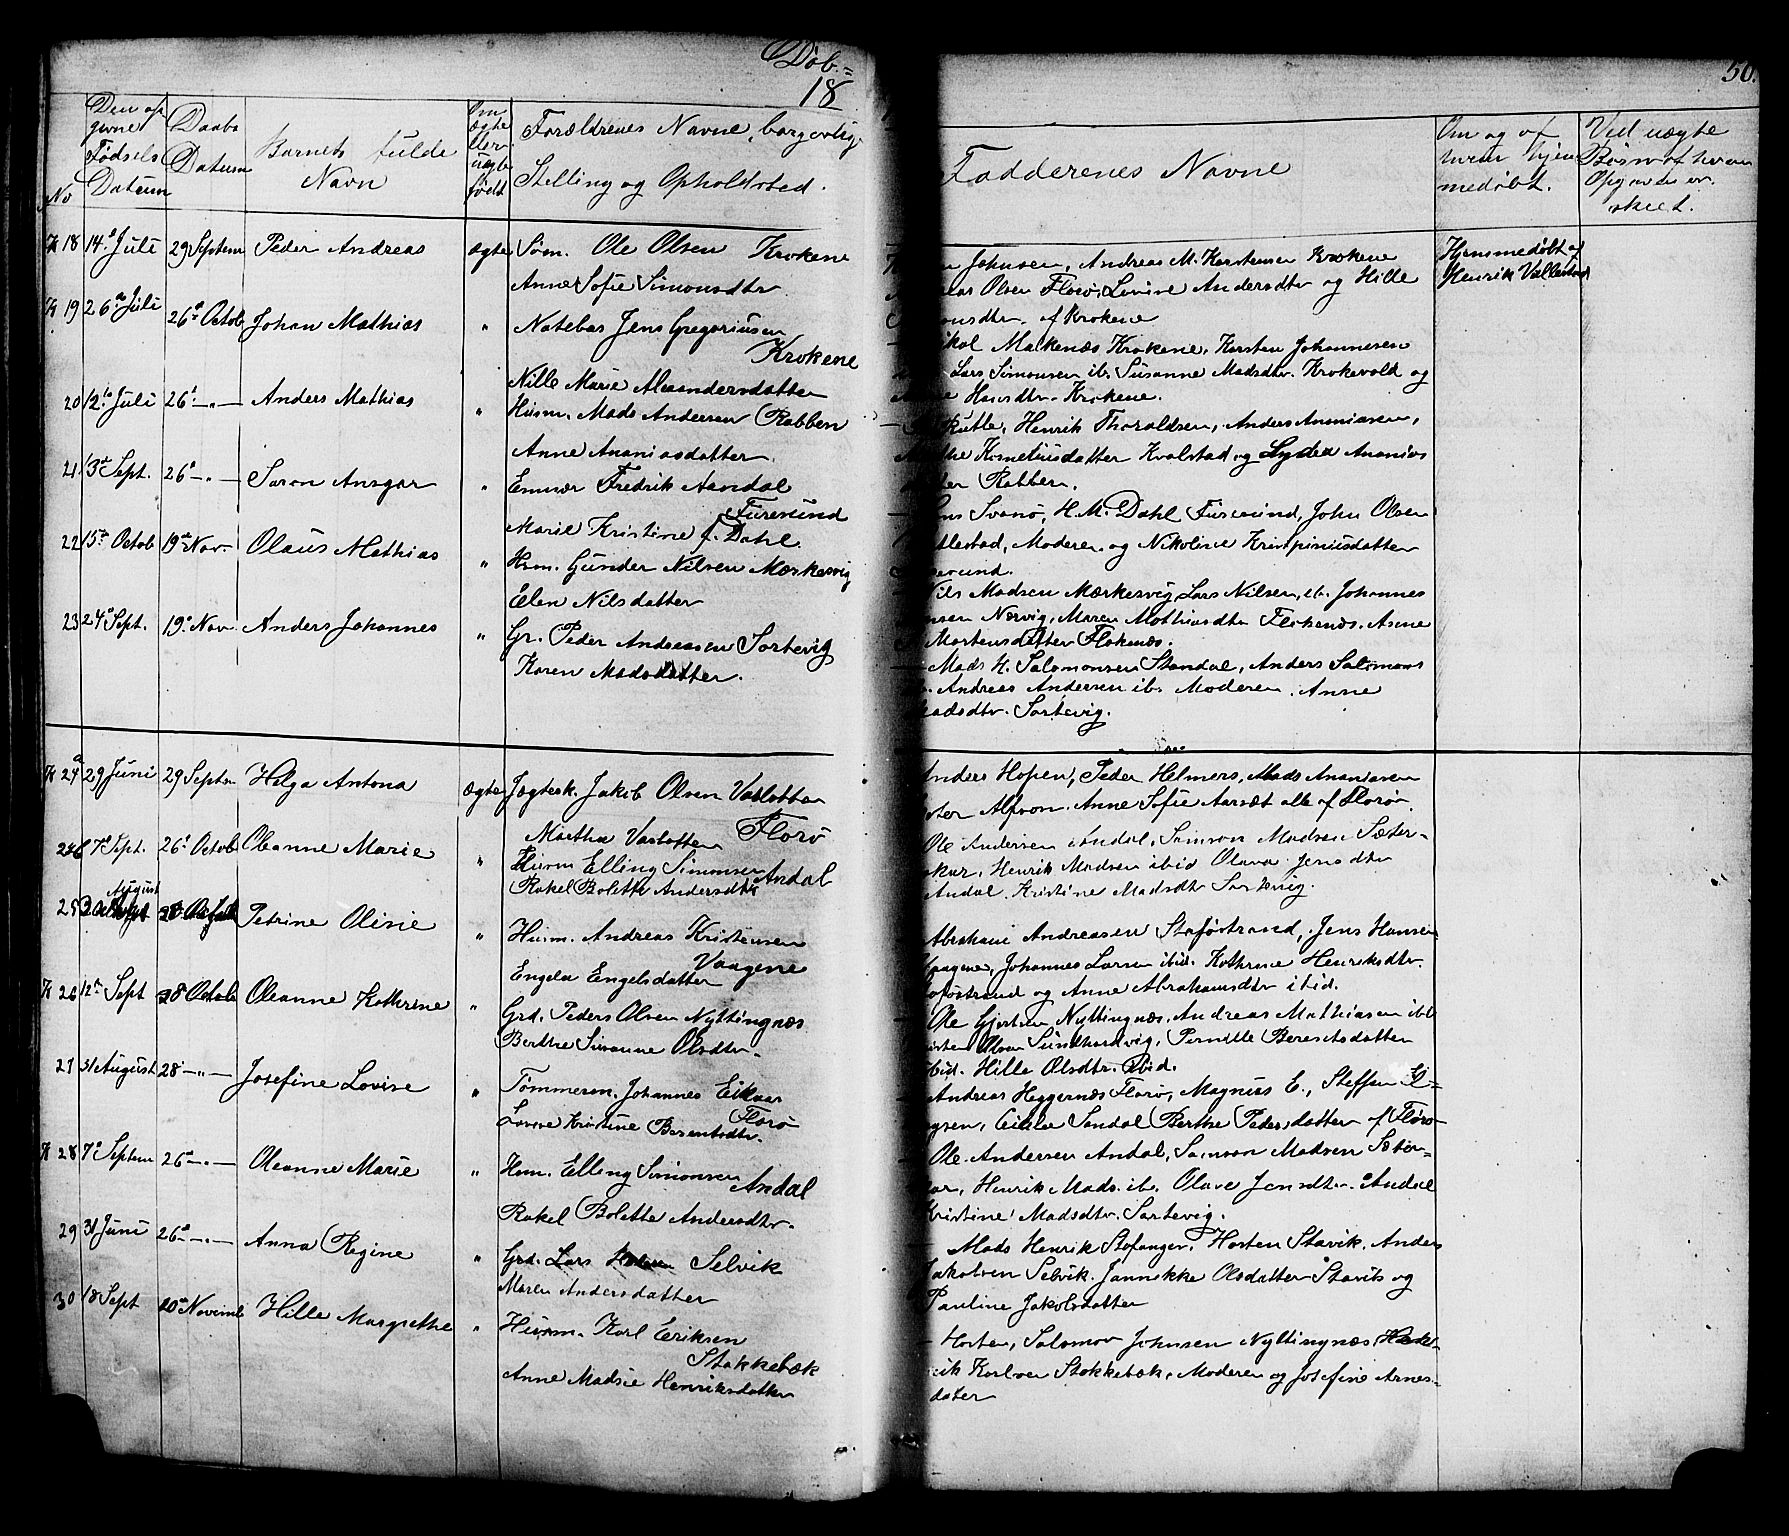 Døb.=
18
50.
Den op
givne
Fødsels
Datum
No
Daabs
Datum
Barnets fulde
Navn
Om
ægte
eller
uægte
født
Forældrenes Navne, borgerlig
Stilling og Opholdsted.
Fadderenes Navne
Om og af
hvem hjem
medøbt.
Ved uægte
Børn af hvem
Opgavene er
skeet.
18 14de Juli 29 Septem Peder Andreas ægte Søm. Ole Olsen Krokene
Anne Sofie Simonsdtr
Johnsen, Andreas M. Karstensen Krokene
Olsen Florø, Lovise Andersdtr og Hille
af Krokene
Hjemmedøbt af
Henrik Vallestad
19 26de Juli 26de Octob Johan Mathias " Notebas Jens Gregoriusen
Krokene
Nille Marie Alexandersdatter
Malkenæs Krokene, Karsten Johannesen
Lars Simonsen ib. Susanne Madsdtr. Krokevold og
Hansdtr. Krokene.
20 12te Juli 26d —"— Anders Mathias " Husm. Mads Andersen Rabben
Anne Ananiasdatter.
Rutle, Henrik Thoraldsen, Anders Ananiasen,
Korneliusdatter Kvalstad og Lydea Ananias
Rabben.
21 13de Sept. 26d —"— Saron Ansgar " Fredrik Aandal
Furesund
Marie Kristine f. Dahl.
Svanø, H. M. Dahl Furesund, John Olsen
Moderen og Nikoline Krispiniusdatter
22 15de Octob 19de Nov. Olaus Mathias " Hsm. Gunder Nilsen Mærkesvig
Elen Nilsdatter
Nils Madsen Mærkesvig, Lars Nilsen, ib. Johannes
Norvig, Maren Mathiasdtr Flokenæs. Anne
Mortensdatter Flokenæs.
23 24d Sept. 19d Nov. Anders Johannes " Gr. Peder Andreasen Sortevig
Karen Madsdatter.
Mads H. Salomonsen Standal, Anders Salomons
Andreas Andersen ib. Moderen. Anne
Madsdtr. Sortevig.
24a 29 Juni 29 Septem Helga Antona ægte Jægtesk. Jakob Olsen Varlotten
Florø
Martha Varlotten
Anders Hopen, Peder Helmers, Mads Ananiasen
Anne Sofie Aarsæt alle af Florø.
24b 7d Sept. 26d Octob Oleanne Marie " Husm Elling Simonsen
Andal
Rakel Bolette Andersdtr
Ole Andersen Andal, Samson Madsen Sæter-
Henrik Madsen ibid Olava Jensdtr
Andal. Kristine Madsdtr Sortevig.
August
25 Petrine Olivie " Husm. Andreas Kristensen
Vaagene
Engela Engelsdatter
Abraham Andreasen Staføstrand, Jens Hansen
Vaagene, Johannes Larsen ibid. Kathrine Henriksdtr.
og Anne Abrahamsdtr ibid.
26 12te Sept 28 Octob Oleanne Kathrine " Grd. Peders Olsen Nyttingnæs
Berthe Susanne Olsdtr.
Ole Gjertsen Nyttingnæs, Andreas Mathiasen ibd
Olsen Sundhordvig, Pernille Berentsdatter
Ibid. Hille Olsdtr. Ibid.
27 31 August 28 —"— Josefine Lovise " Tømmerm. Johannes Eikaas
Florø
Lovise Kristine Berentsdtr.
Andreas Heggernæs Florø, Magnus E., Steffen E-
Cecilie Sandal Berthe Pedersdatter af Florø
28 7d Septem 26 —"— Oleanne Marie " Hsm. Elling Simonsen
Andal
Rakel Bolette Andersdtr.
Ole Andersen Andal, Samson Madsen Sæter-
Henrik Mads. ib. Olave Jensdtr. Andal
Kristine Madsdtr. Sortevig.
29 31 Juni 26d —"— Anna Regine " Grd. Lars Selvik
Maren Andersdatter
Mads Henrik Stafanger, Horten Stavik, Anders
Jakobsen Selvik. Jannikke Olsdatter Stavik og
Pauline Jakobsdatter
30 18 Sept 20de Novemb Hille Margrethe " Husm. Karl Eriksen
Stokkebæk
Anne Madsie Henriksdatter
Horten, Salomon Johnsen Nyttingnæs,
Karlsen Stokkebæk, Moderen og Josefine Arnes-
datter